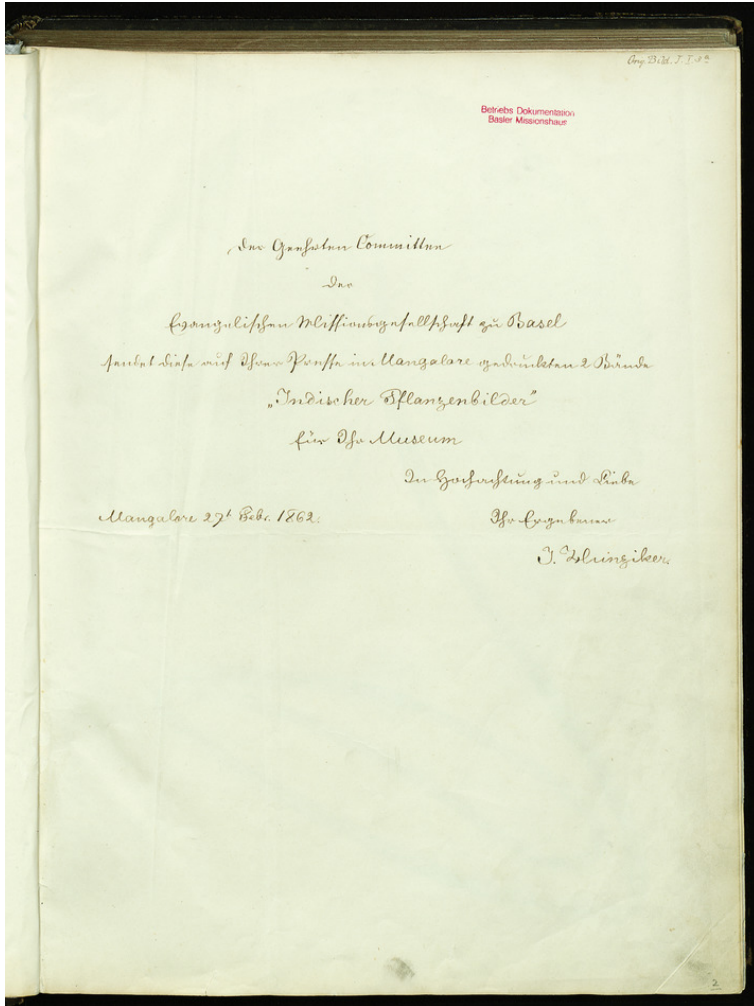 Betriebs Dokumentation
Basler Missionshaus
Der Geehrten Committee
der
Evangelischen Missionsgesellschaft zu Basel
sendet diese auf Ihrer Presse in Mangalore gedruckten 2 Bände
„Indischer Pflanzenbilder“
für Ihr Museum
In Hochachtung und Liebe
Mangalore 27t Febr. 1862.
Ihr Ergebener
J. Hunziker.
2